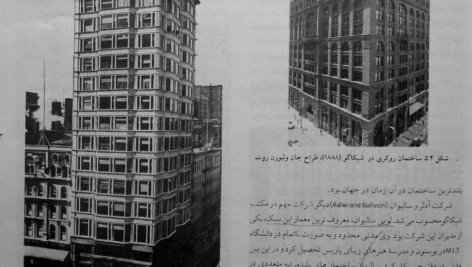 شکل ۵.۲ ساختمان روکری در شیکاگو (۱۸۸۸)، طراح جان ولبورن روت
بلندترین ساختمان در آن زمان در جهان بود.
شرکت آدلر و سالیوان (Adler and Sullivon) دیگر شرکت مهم در مکتب
شیکاگو محسوب می شد. لویی سالیوان، معروف ترین معمار این سبک، یکی
از مدیران این شرکت بود. وی مدتی محدود و به صورت ناتمام در دانشگاه
M.I.T در بوستون و مدرسۀ هنرهای زیبای پاریس تحصیل کرد و در این بین